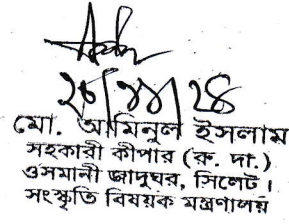 ২৮/১১/২৪
মো. আমিনুল ইসলাম
সহকারী কীপার (রু. দা.)
ওসমানী জাদুঘর, সিলেট।
সংস্কৃতি বিষয়ক মন্ত্রণালয়